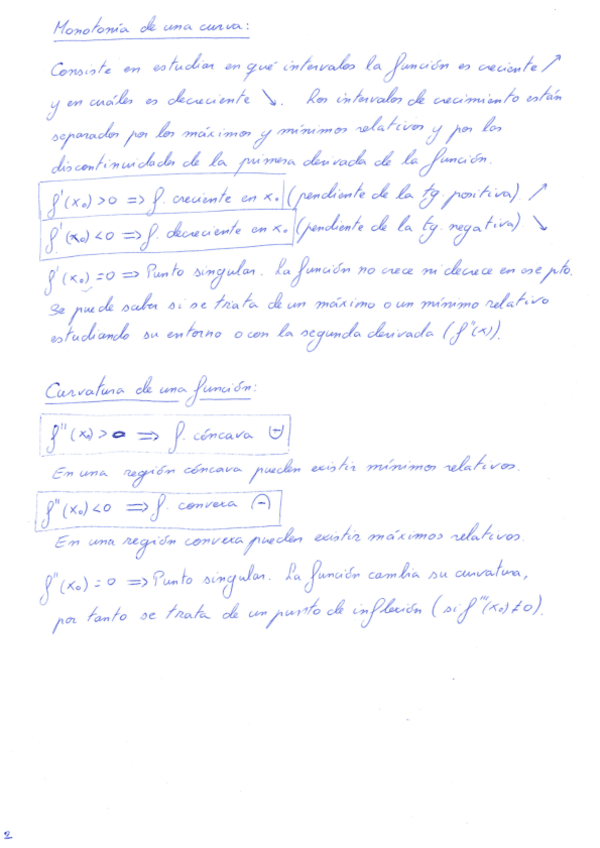 Monotonía de una curva:
Consiste en estudiar en qué intervalos la función es creciente ↗
y en cuáles es decreciente ↘. Los intervalos de crecimiento están
separados por los máximos y mínimos relativos y por las
discontinuidades de la primera derivada de la función.
f'(x₀) > 0 => f. creciente en x₀ (pendiente de la tg. positiva) ↗
f'(x₀) < 0 => f. decreciente en x₀ (pendiente de la tg. negativa) ↘
f'(x₀) = 0 => Punto singular. La función no crece ni decrece en ese pto.
Se puede saber si se trata de un máximo o un mínimo relativo
estudiando su entorno o con la segunda derivada (f''(x)).
Curvatura de una función:
f''(x₀) > 0 => f. cóncava ∪
En una región cóncava pueden existir mínimos relativos.
f''(x₀) < 0 => f. convexa ∩
En una región convexa pueden existir máximos relativos.
f''(x₀) = 0 => Punto singular. La función cambia su curvatura,
por tanto se trata de un punto de inflexión (si f'''(x₀) ≠ 0).
2